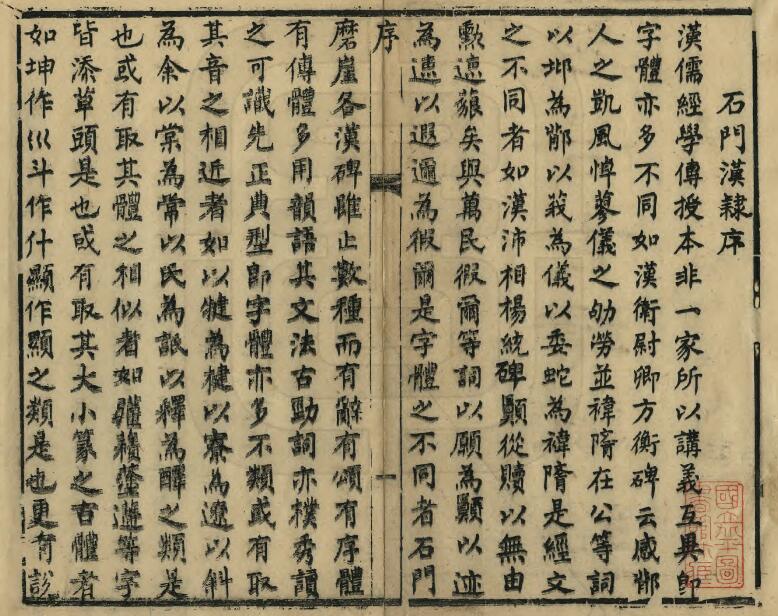 石門漢隸序
漢儒經學傳授本非一家所以講義互異卽
字體亦多不同如漢衛尉卿方衡碑云感鄁
人之凱風悼蓼儀之劬勞並褘隋在公等詞
以邶為鄁以莪為儀以委蛇為褘隋是經文
之不同者如漢沛相楊統碑顥從贖以無由
勳速藐矣與萬民徦爾等詞以願為顥以迹
為速以遐邇為徦爾是字體之不同者石門
序
磨崖各漢碑雖止數種而有辭有頌有序體
有傳體多用韻語其文法古勁詞亦樸秀讀
之可識先正典型卽字體亦多不類或有取
其音之相近者如以犍為楗以寮為遼以斜
為余以棠為常以民為詆以釋為醳之類是
也或有取其體之相似者如等字
皆添草頭是也或有取其大小篆之古體者
如坤作巛斗作什顯作顯之類是也更有
國立北平圖